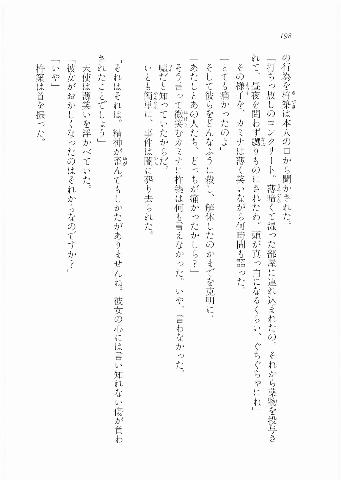 198
の行為を柊策は本人の口から聞かされた。
「打ちっ放しのコンクリート。薄暗くて湿った部屋に連れ込まれたの。それから薬物を投与さ
れて、昼夜を問わず嬲りものにされたわ。頭が真っ白になるくらい、ぐちゃぐちゃにね」
その様子を、カミナは薄く笑いながら何時間も語った。
「とても痛かったのよ」
そして彼らをどんなふうに殺し、解体したのかまでを克明に。
「あたしとあの人たち、どっちが痛かったかしら?」
そう言って微笑むカミナに柊策は何も言えなかった。いや、言わなかった。
嘘だと知っていたからだ。
いとも簡単に、事件は闇に葬り去られた。
「それはそれは。精神が歪んでもしかたがありませんね。彼女の心には言い知れない傷が負わ
されたことでしょう」
天使は薄笑いを浮かべていた。
「彼女がおかしくなったのはそれからなのですか?」
「いや」
柊策は首を振った。